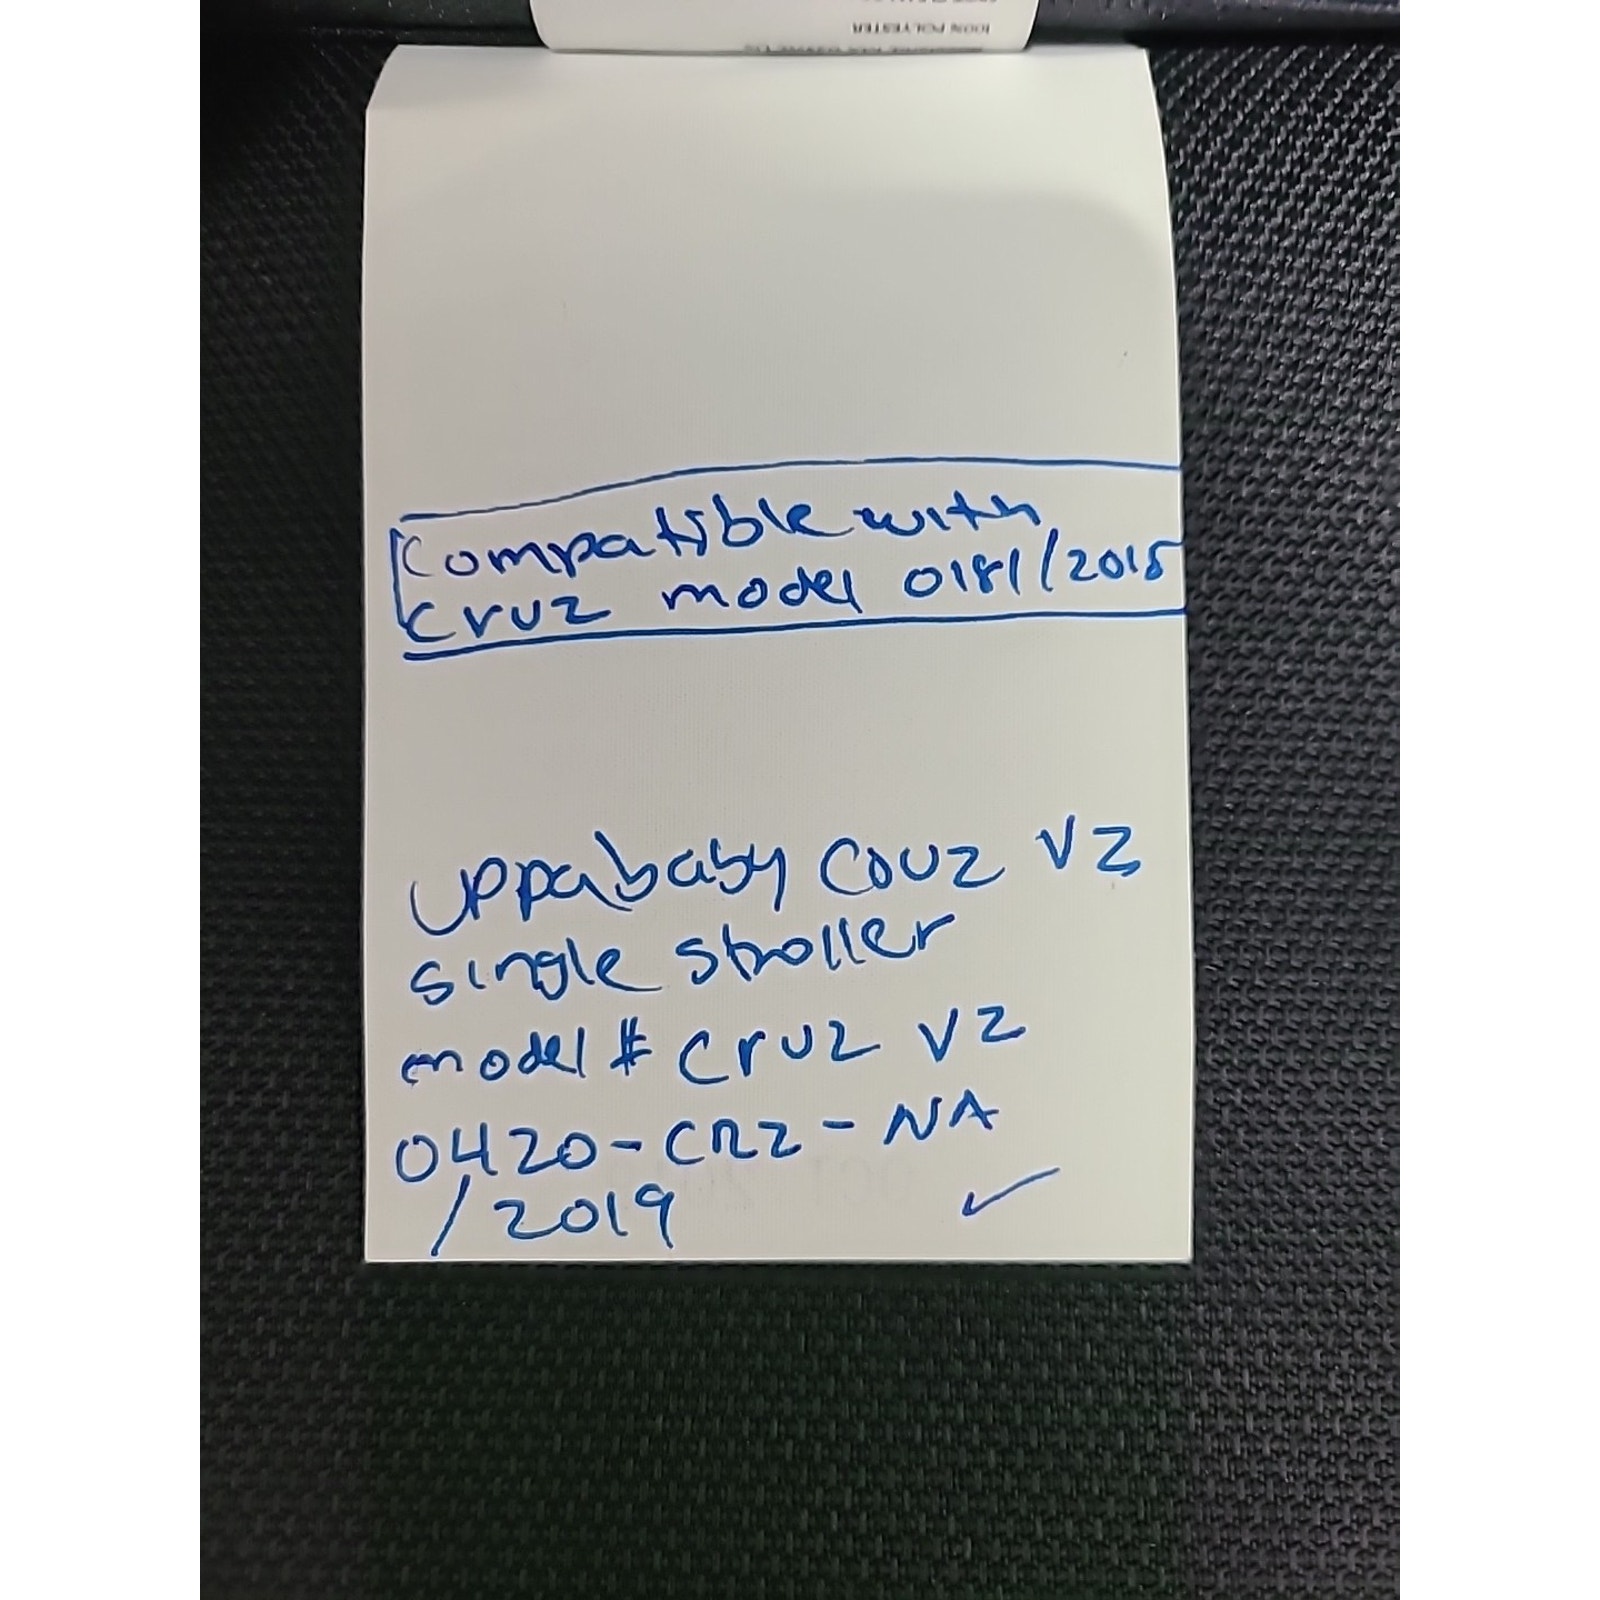 100% POLYESTER
Compatible with
Cruz model 0181/2015
Uppababy Couz V2
single stroller
model # Cruz V2
0420-CRZ-NA
/2019